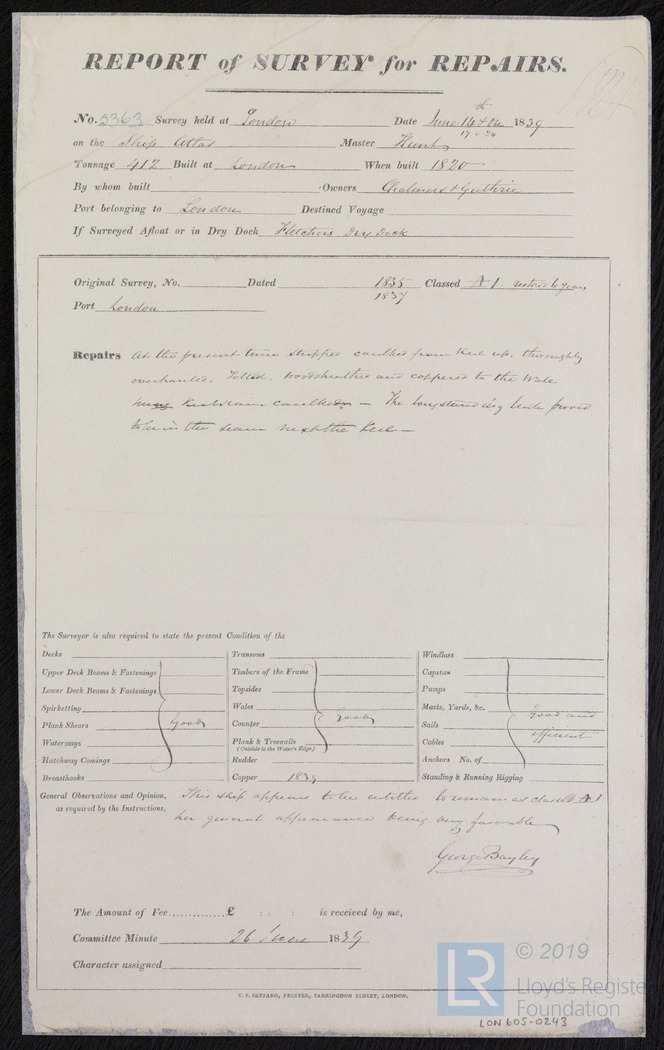 REPORT of SURVEY for REPAIRS.
No. 5363 Survey held at London Date June 14th & 1839
17 & 24
on the Ship Atlas Master Hunt
Tonnage 412 Built at London When built 1820
By whom built Owners Chalmers & Guthrie
Port belonging to London Destined Voyage
If Surveyed Afloat or in Dry Dock Fletchers Dry Dock
Original Survey, No. Dated 1835 Classed A 1. restored 6 years
1837
Port London
Repairs At the present time stripped caulked from Keel up, thoroughly
overhauled. Felted. Woodsheathed and coppered to the Wale
caulked — The long standing leak proved
to be in the seam next the Keel —
The Surveyor is also required to state the present Condition of the
Decks
Upper Deck Beams & Fastenings
Lower Deck Beams & Fastenings
Spirketting
Plank Shears Good
Waterways
Hatchway Comings
Breasthooks
Transoms
Timbers of the Frame
Topsides
Wales
Counter Good
Plank & Treenails
(Outside to the Water's Edge)
Rudder
Copper 1839
Windlass
Capstan
Pumps
Masts, Yards, &c. Good and
Sails
Cables efficient
Anchors No. of
Standing & Running Rigging
General Observations and Opinion, This ship appears to be entitled to remain as classed A 1
as required by the Instructions, her general appearance being very favorable
George Bayley
The Amount of Fee..............£ : : is received by me,
Committee Minute 26 June 1839
Character assigned
C. F. SEYFANG, PRINTER, FARRINGDON STREET, LONDON.
LR © 2019
Lloyd's Register
Foundation
LON 605-0243